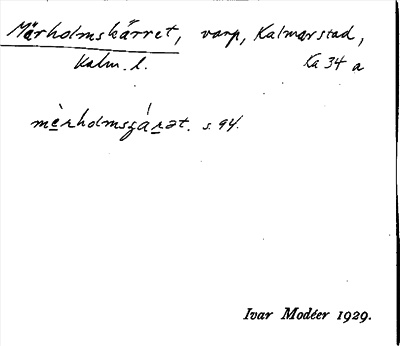 Märholmskärret, varp, Kalmarstad,
Kalm. l. Ka 34 a
mèrholmsʒárət. s. 94.
Ivar Modéer 1929.